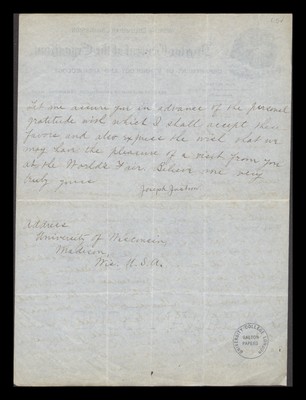 Let me assure you in advance of the personal
gratitude with which I shall accept these
favors and also express the wish that we
may have the pleasure of a visit from you
at the World's Fair. Believe me very
truly yours
Joseph Jastrow
Address
University of Wisconsin,
Madison,
Wis. U.S.A.
UNIVERSITY COLLEGE LONDON
GALTON
PAPERS